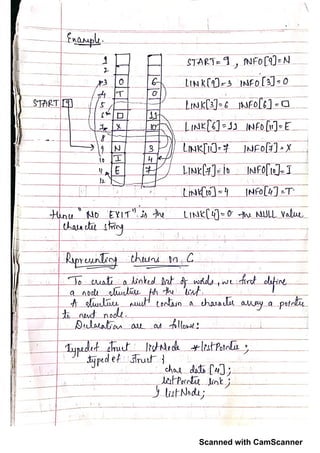 Example.
START = 9, INFO[9] = N
1
2
3 O 6
LINK[9] = 3 INFO[3] = O
4 T 0
START 9
5
LINK[3] = 6 INFO[6] = □
6 □ 11
7 X 10
LINK[6] = 11 INFO[11] = E
8
9 N 3
LINK[11] = 7 INFO[7] = X
10 I 4
11 E 7
LINK[7] = 10 INFO[10] = I
12
LINK[10] = 4 INFO[4] = T
Hence "NO EXIT" is the LINK[4] = 0 the NULL value
character string
Representing chains in C
To create a linked list of words, we first define
a node structure for the list.
A structure must contain a character array a pointer
to next node.
Declaration are as follows:
typedef struct listNode *listPointer;
typedef struct {
char data[4];
listPointer link;
} listNode;
Scanned with CamScanner